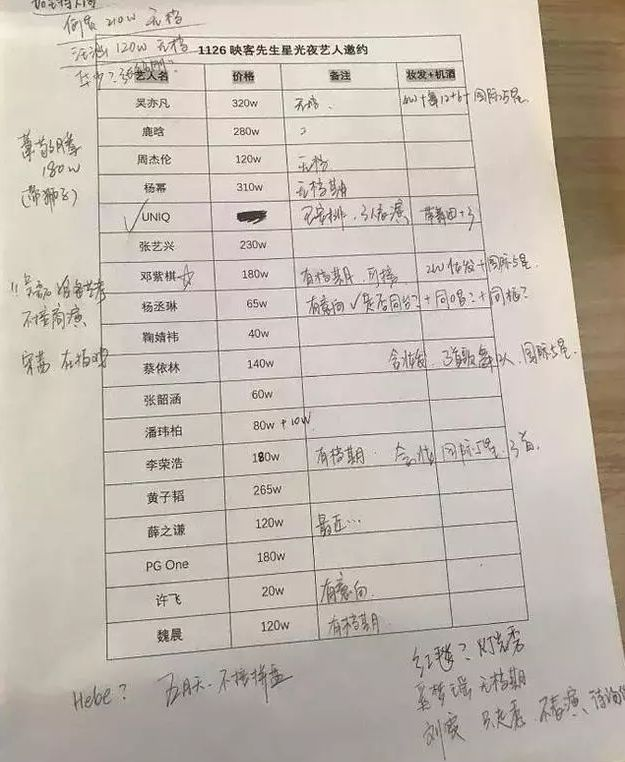 何炅 210w 无档
汪涵 120w 无档
1126 映客先生星光夜艺人邀约
艺人名 价格 备注 妆发+机酒
吴亦凡 320w 无档. 国际5星.
鹿晗 280w ?
周杰伦 120w 无档
杨幂 310w 无档期
UNIQ 已安排. 3人表演
张艺兴 230w
邓紫棋 180w 有档期. 可接 2w 妆发+国际5星.
杨丞琳 65w 有意向 √ 是否同台? + 同唱? + 同框?
鞠婧祎 40w
蔡依林 140w 含妆发 国际5星.
张韶涵 60w
潘玮柏 80w +10w
李荣浩 180w 有档期. 国际5星 3首.
黄子韬 265w
薛之谦 120w 最近…
PG One 180w
许飞 20w 有意向.
魏晨 120w 有档期.
180w
(带狮子)
不接商演
宋茜 在档期
Hebe? 五月天. 不接拼盘
奚梦瑶 无档期
刘雯 只走秀 不表演.